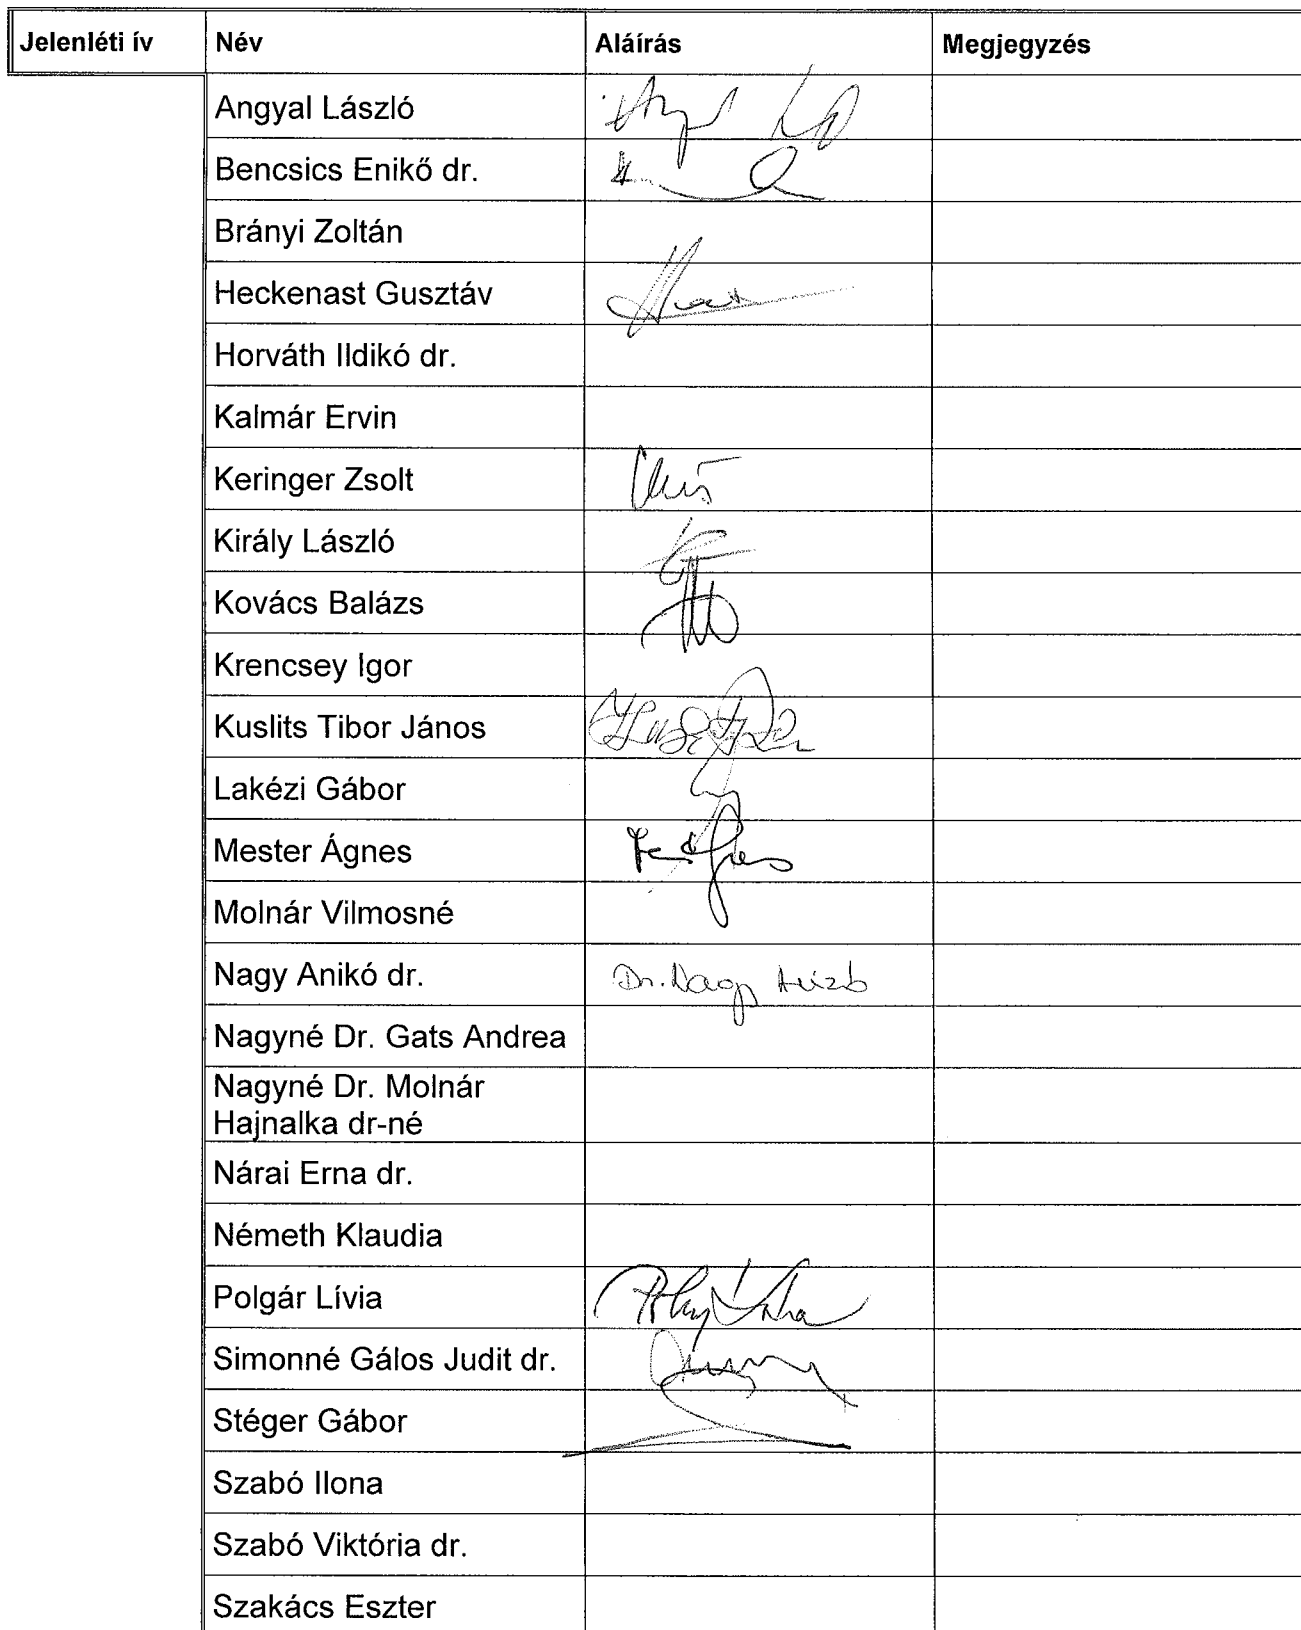 Jelenléti ív Név Aláírás Megjegyzés
Angyal László
Bencsics Enikő dr.
Brányi Zoltán
Heckenast Gusztáv
Horváth Ildikó dr.
Kalmár Ervin
Keringer Zsolt
Király László
Kovács Balázs
Krencsey Igor
Kuslits Tibor János
Lakézi Gábor
Mester Ágnes
Molnár Vilmosné
Nagy Anikó dr. Dr. Nagy Anikó
Nagyné Dr. Gats Andrea
Nagyné Dr. Molnár
Hajnalka dr-né
Nárai Erna dr.
Németh Klaudia
Polgár Lívia
Simonné Gálos Judit dr.
Stéger Gábor
Szabó Ilona
Szabó Viktória dr.
Szakács Eszter